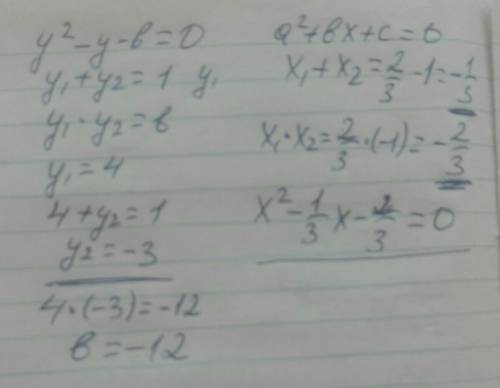 y² - y - в = 0
y₁ + y₂ = 1 y₁
y₁ · y₂ = в
y₁ = 4
4 + y₂ = 1
y₂ = -3
4 · (-3) = -12
в = -12
a² + вx + c = 0
x₁ + x₂ = 2/3 - 1 = -1/3
x₁ · x₂ = 2/3 · (-1) = -2/3
x² - 1/3 x - 2/3 = 0